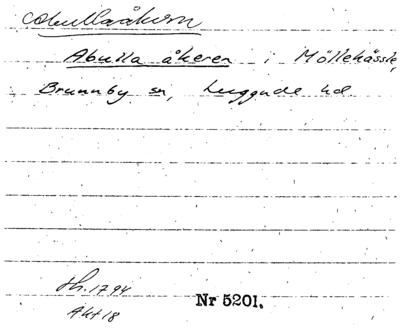 Abullaåkern
Abulla åkeren i Möllehässle,
Brunnby sn, Luggude hd.
sh. 1794
Nr 5201.
Akt 18